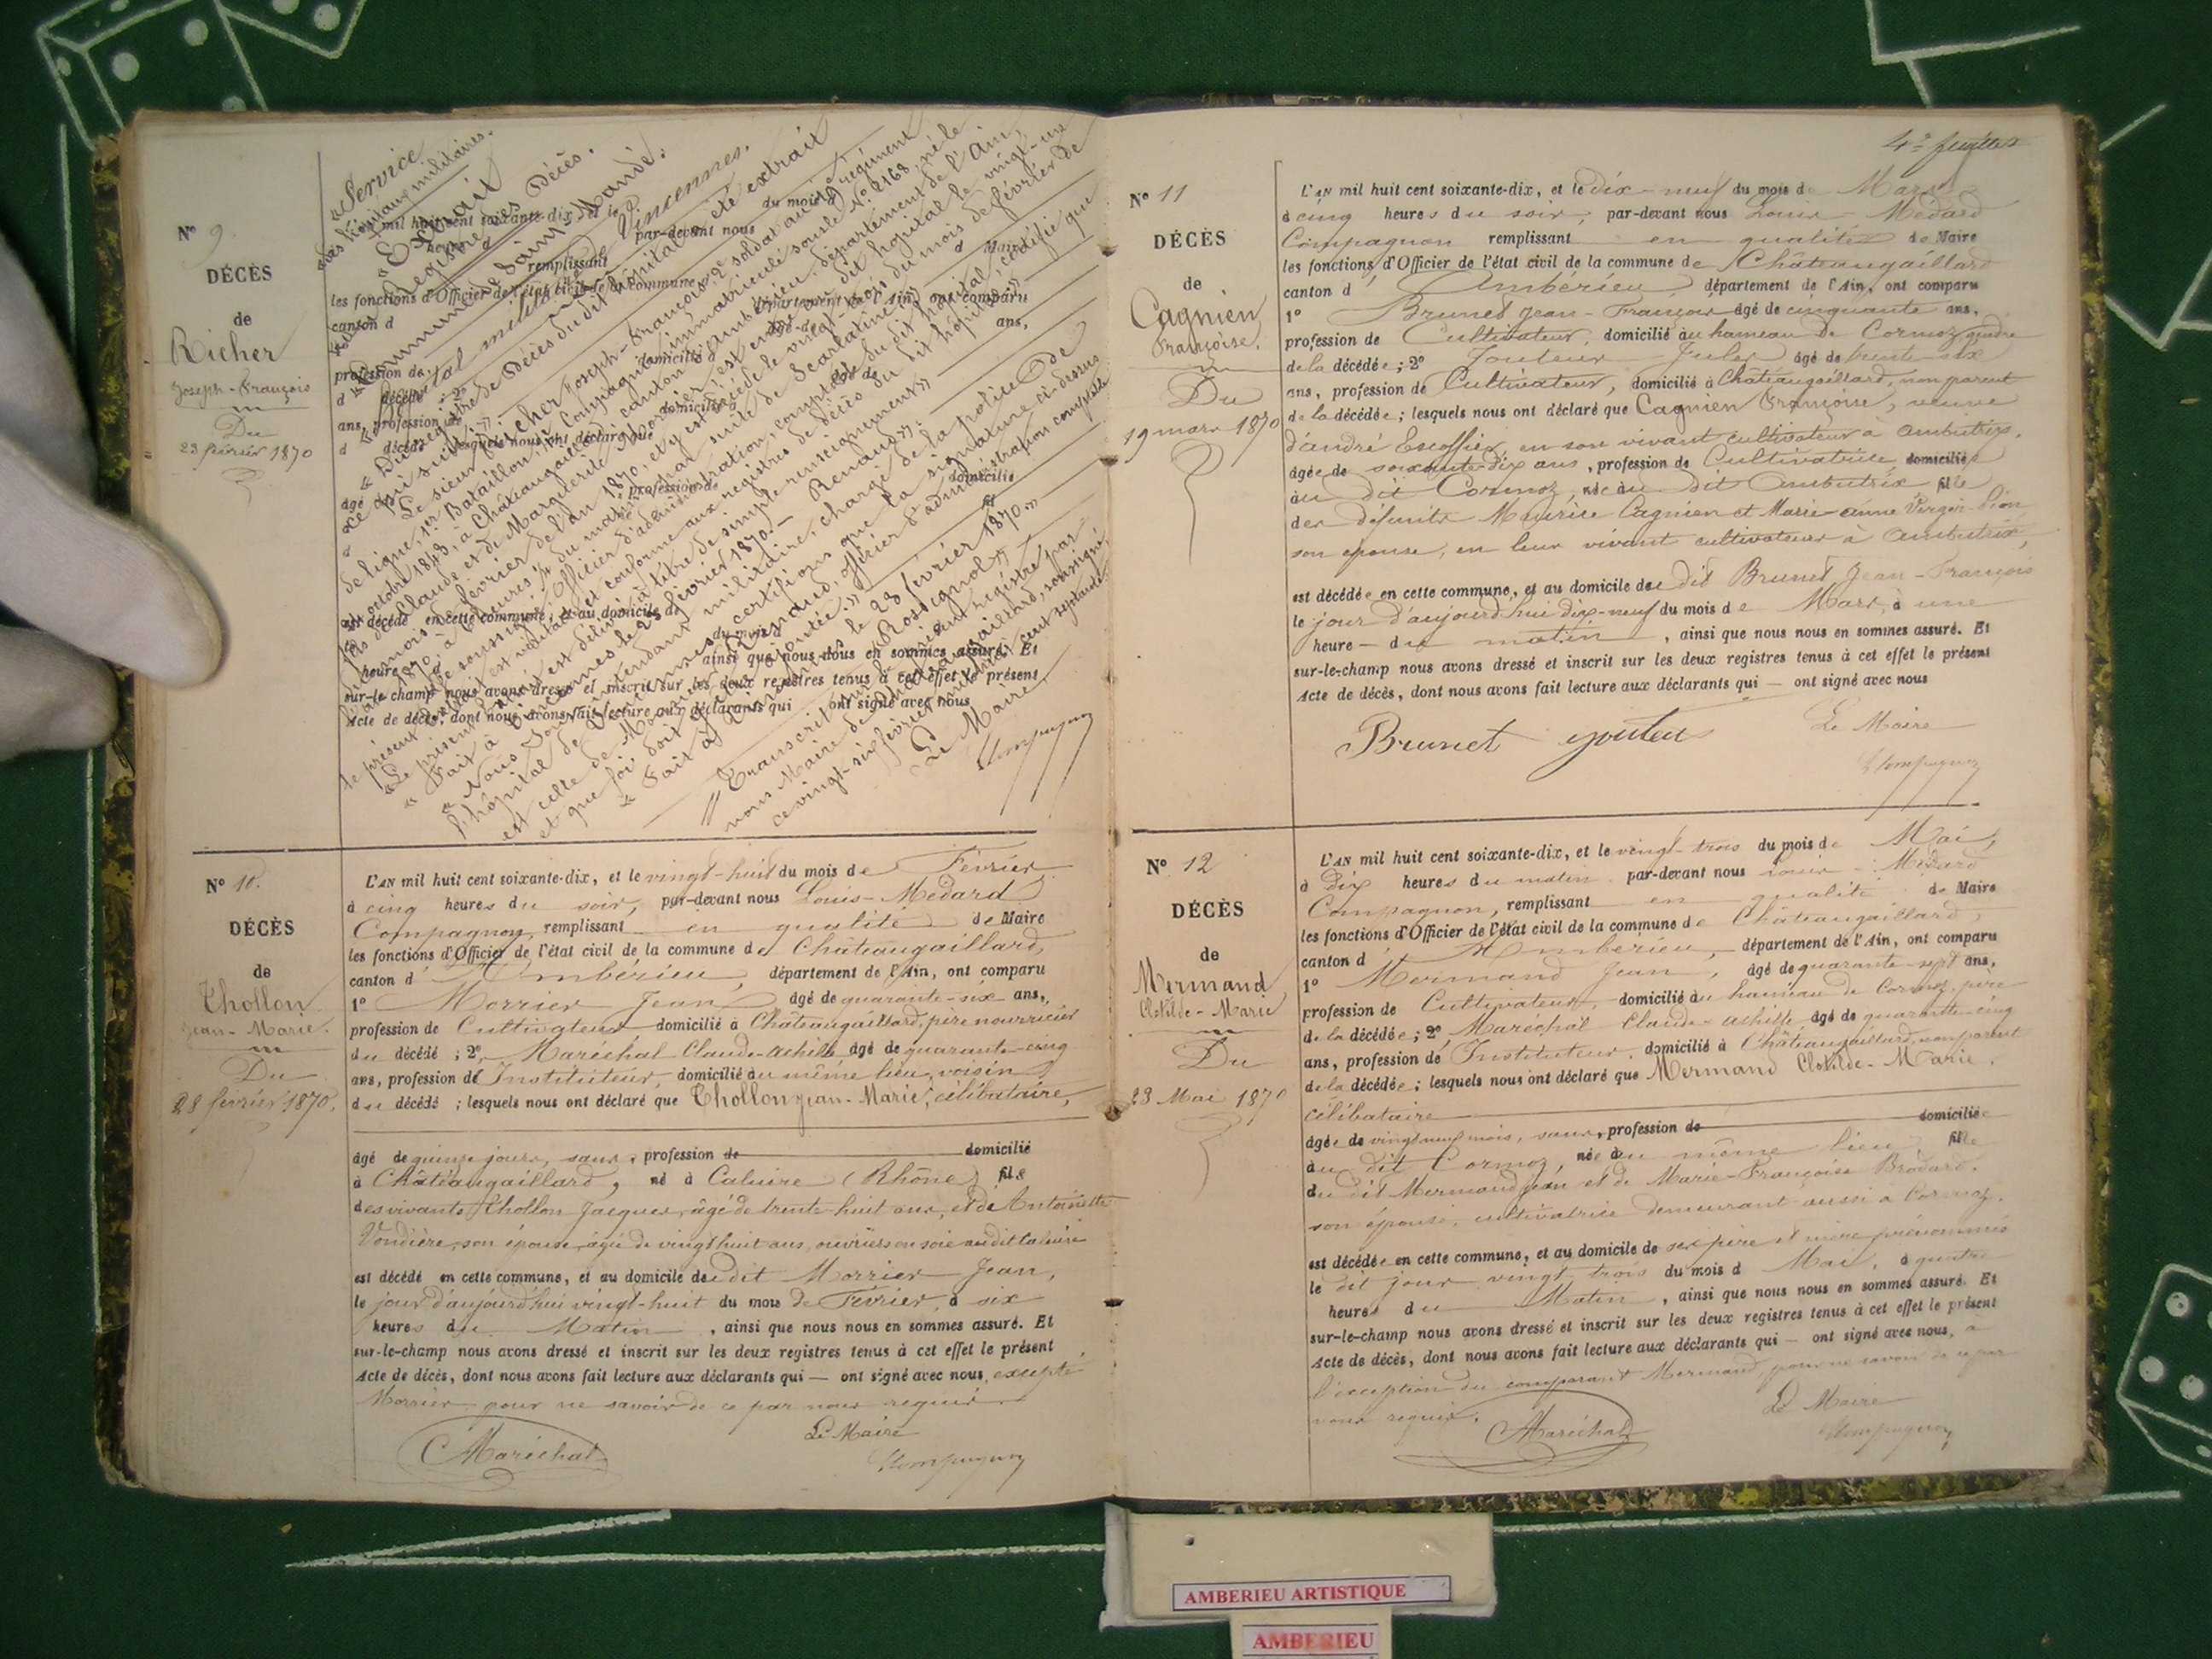 Nº 9.
DÉCÈS
de
Richer
Joseph-François
Du
23 février 1870
«Service
des hôpitaux militaires.
«Extrait
Registre des Décès.
Commune de Saint-Mandé.
Hôpital militaire de Vincennes.
« Du registre de Décès du dit hôpital a été extrait
ce qui suit: »
Le sieur Richer Joseph-François, 2e soldat au régiment
de ligne, 1er Bataillon, Compagnie, immatriculé sous le Nº 2168, né le
octobre 1843, à Châteaugaillard, canton d'Ambérieu, département de l'Ain,
fils de Claude et de Marguerite est entré au dit hôpital le vingt-un
du mois de février de l'an 1870, et y est décédé le vingt-trois du mois de février de
l'an 1870, à heures du matin par suite de Scarlatine »
Je soussigné, Officier d'administration, comptable du dit hôpital, certifie que
le présent extrait est véritable et conforme aux registres de décès du dit hôpital. »
«Le présent extrait est délivré à titre de simple renseignement »
« Fait à Vincennes le 23 février 1870. Renaud».
« Nous Sous-Intendant militaire, chargé de la police de
l'hôpital de Vincennes, certifions que la signature ci-dessus
est celle de Mr Renaud, officier d'administration comptable
et que foi doit y être ajoutée.»
« Fait à le 23 février 1870.»
Rossignol »
Transcrit sur le présent registre par
nous Maire de Châteaugaillard, soussigné,
ce vingt-six février mil huit cent septante
Le Maire
LCompagnon
L'AN mil huit cent soixante-dix, et le du mois d
heure d par-devant nous
remplissant d Maire
les fonctions d'Officier de l'état civil de la commune d
canton d département de l'Ain, ont comparu
âgé de ans,
profession de domicilié
d décédé ; 2º âgé de
ans, profession de domicilié à
d décédé lesquels nous ont déclaré que
âgé profession de domicilié
d fil
est décédé en cette commune, et au domicile de
du mois d
heure ainsi que nous nous en sommes assuré. Et
sur-le champ nous avons dressé et inscrit sur les deux registres tenus à cet effet le présent
Acte de décès, dont nous avons fait lecture aux déclarants qui ont signé avec nous
Nº 10.
DÉCÈS
de
Thollon
Jean-Marie.
Du
28 février 1870.
L'AN mil huit cent soixante-dix, et le vingt-huit du mois de Février
à cinq heures du soir, par-devant nous Louis-Médard
Compagnon, remplissant en qualité de Maire
les fonctions d'Officier de l'état civil de la commune de Châteaugaillard,
canton d'Ambérieu, département de l'Ain, ont comparu
1º Morrier Jean âgé de quarante-six ans,
profession de Cultivateur domicilié à Châteaugaillard, père nourricier
du décédé ; 2º Maréchal Claude-Achille âgé de quarante-cinq
ans, profession de Instituteur, domicilié au même lieu, voisin
du décédé ; lesquels nous ont déclaré que Thollon Jean-Marie, célibataire,
âgé de quinze jours, sans, profession de domicilié
à Châteaugaillard, né à Caluire (Rhône) fils
des vivants Thollon Jacques, âgé de trente-huit ans, et de Antoinette
Vondière, son épouse, âgée de vingt huit ans, ouvriers en soie au dit Caluire
est décédé en cette commune, et au domicile du dit Morrier Jean,
le jour d'aujourd'hui vingt-huit du mois de Février, à six
heures du Matin, ainsi que nous nous en sommes assuré. Et
sur-le-champ nous avons dressé et inscrit sur les deux registres tenus à cet effet le présent
Acte de décès, dont nous avons fait lecture aux déclarants qui — ont signé avec nous, excepté
Morrier pour ne savoir de ce par nous requis.
Maréchal
Le Maire
LCompagnon
4e feuillet
Nº 11
DÉCÈS
de
Cagnien
Françoise.
Du
19 mars 1870
L'AN mil huit cent soixante-dix, et le dix-neuf du mois de Mars
à cinq heures du soir, par-devant nous Louis-Médard
Compagnon remplissant en qualité de Maire
les fonctions d'Officier de l'état civil de la commune de Châteaugaillard
canton d'Ambérieu, département de l'Ain, ont comparu
1º Brunet Jean-François âgé de cinquante ans,
profession de Cultivateur, domicilié au hameau de Cormoz, gendre
de la décédée ; 2º Jouteur Jules âgé de trente-six
ans, profession de Cultivateur, domicilié à Châteaugaillard, non parent
de la décédée ; lesquels nous ont déclaré que Cagnien Françoise, veuve
d'André Escoffier en son vivant cultivateur à Ambutrix,
âgée de soixante-dix ans, profession de Cultivatrice domiciliée
au dit Cormoz, née au dit Ambutrix fille
des défunts Maurice Cagnien et Marie-Anne Verger-Lion
son épouse, en leur vivant cultivateurs à Ambutrix,
est décédée en cette commune, et au domicile du dit Brunet Jean-François
le jour d'aujourd'hui dix-neuf du mois de Mars, à une
heure — du matin, ainsi que nous nous en sommes assuré. Et
sur-le-champ nous avons dressé et inscrit sur les deux registres tenus à cet effet le présent
Acte de décès, dont nous avons fait lecture aux déclarants qui — ont signé avec nous
Brunet Jouteur
Le Maire
LCompagnon
Nº 12
DÉCÈS
de
Mermand
Clotilde-Marie
Du
23 Mai 1870
L'AN mil huit cent soixante-dix, et le vingt-trois du mois de Mai,
à Dix heures du matin par-devant nous Louis-Médard
Compagnon, remplissant en qualité de Maire
les fonctions d'Officier de l'état civil de la commune de Châteaugaillard,
canton d'Ambérieu, département de l'Ain, ont comparu
1º Mermand Jean, âgé de quarante-sept ans,
profession de Cultivateur, domicilié au hameau de Cormoz, père
de la décédée ; 2º Maréchal Claude-Achille âgé de quarante-cinq
ans, profession de Instituteur, domicilié à Châteaugaillard, non parent
de la décédée ; lesquels nous ont déclaré que Mermand Clotilde-Marie,
célibataire
âgée de vingt neuf mois, sans, profession de domiciliée
au dit Cormoz, née au même lieu, fille
du dit Mermand Jean et de Marie-Françoise Brodard,
son épouse, cultivatrice demeurant aussi à Cormoz,
est décédée en cette commune, et au domicile de ses père et mère prénommés
le dit jour vingt trois du mois d Mai, à quatre
heures du Matin, ainsi que nous nous en sommes assuré. Et
sur-le-champ nous avons dressé et inscrit sur les deux registres tenus à cet effet le présent
Acte de décès, dont nous avons fait lecture aux déclarants qui — ont signé avec nous, à
l'exception du comparant Mermand, pour ne savoir de ce par
nous requis.
Maréchal
Le Maire
LCompagnon
AMBERIEU ARTISTIQUE
AMBERIEU